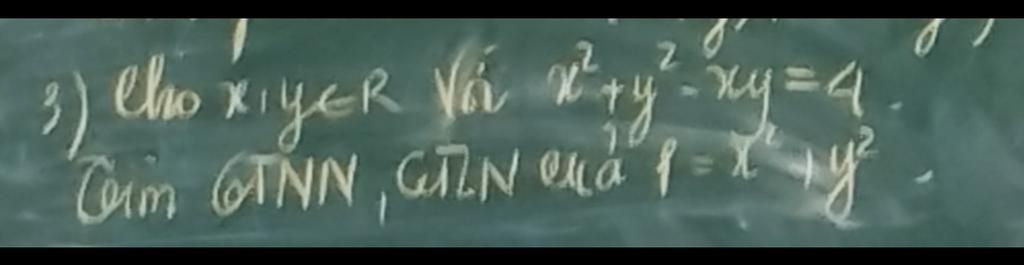 3) Cho x,y∈R Với x²+y²-xy=4.
Tìm GTNN, GTLN của P = x²+y².